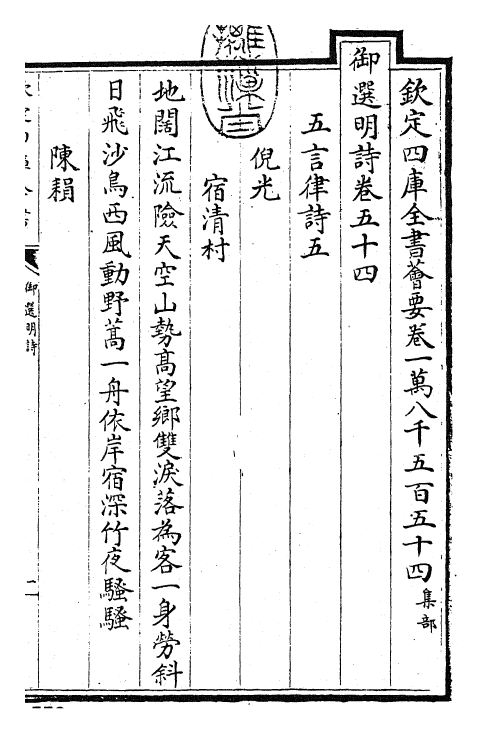 欽定四庫全書薈要卷一萬八千五百五十四 集部
御選明詩卷五十四
五言律詩五
倪光
宿清村
地闊江流險天空山勢高望鄉雙淚落為客一身勞斜
日飛沙鳥西風動野蒿一舟依岸宿深竹夜騷騷
陳賴
御選明詩